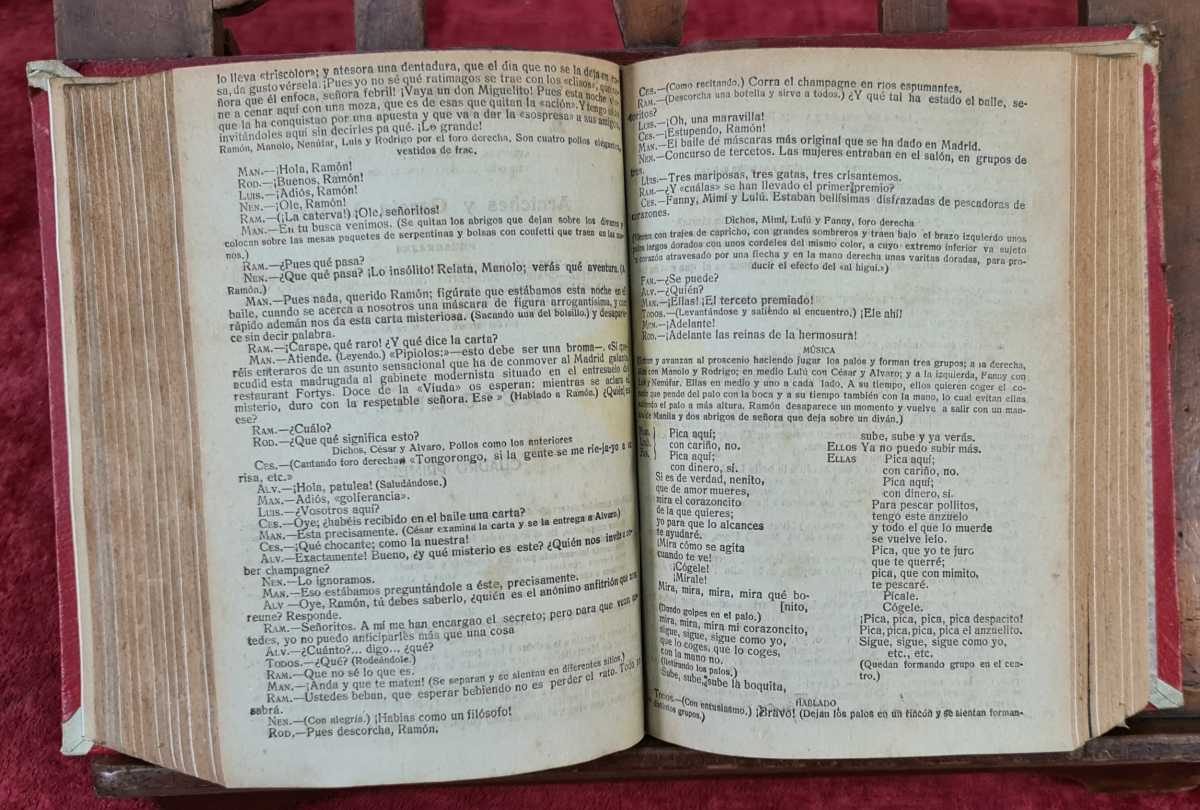 lo lleva «triscolor»; y atesora una dentadura, que el día que no se la deja en
sa, da gusto vérsela. ¡Pues yo no sé qué ratimagos se trae con los «clisos»,
ñora que él enfoca, señora febril! ¡Vaya un don Miguelito! Pues esta noche
ne a cenar aquí con una moza, que es de esas que quitan la «ación». Y tengo
que la ha conquistao por una apuesta y que va a dar la «sospresa» a sus amigos,
invitándoles aquí sin decirles pa qué. ¡Lo grande!
Ramón, Manolo, Nenúfar, Luis y Rodrigo por el foro derecha, Son cuatro pollos elegantes,
vestidos de frac.
MAN.—¡Hola, Ramón!
ROD.—¡Buenos, Ramón!
LUIS.—¡Adiós, Ramón!
NEN.—¡Ole, Ramón!
RAM.—(¡La caterva!) ¡Ole, señoritos!
MAN.—En tu busca venimos. (Se quitan los abrigos que dejan sobre los divanes y
colocan sobre las mesas paquetes de serpentinas y bolsas con confetti que traen en las ma-
nos.)
RAM.—¿Pues qué pasa?
NEN.—¿Que qué pasa? ¡Lo insólito! Relata, Manolo; verás qué aventura. (A
Ramón.)
MAN.—Pues nada, querido Ramón; figúrate que estábamos esta noche en el
baile, cuando se acerca a nosotros una máscara de figura arrogantísima, y con
rápido ademán nos da esta carta misteriosa. (Sacando una del bolsillo.) y desapare-
ce sin decir palabra.
RAM.—¡Carape, qué raro! ¿Y qué dice la carta?
MAN.—Atiende. (Leyendo.) «Pipiolos:»—esto debe ser una broma—. «Si que-
réis enteraros de un asunto sensacional que ha de conmover al Madrid galante,
acudid esta madrugada al gabinete modernista situado en el entresuelo del
restaurant Fortys. Doce de la «Viuda» os esperan: mientras se aclara el
misterio, duro con la respetable señora. Ese» (Hablado a Ramón.) ¿Quién es
ese?
RAM.—¿Cuálo?
ROD.—¿Que qué significa esto?
Dichos, César y Alvaro, Pollos como los anteriores
CES.—(Cantando foro derecha) «Tongorongo, si la gente se me rie-ja-yo a
risa, etc.»
ALV.—¡Hola, patulea! (Saludándose.)
MAN.—Adiós, «golferancia».
LUIS.—¿Vosotros aquí?
CES.—Oye; ¿habéis recibido en el baile una carta?
MAN.—Esta precisamente. (César examina la carta y se la entrega a Alvaro.)
CES.—¡Qué chocante; como la nuestra!
ALV.—Exactamente! Bueno, ¿y qué misterio es este? ¿Quién nos invita a be-
ber champagne?
NEN.—Lo ignoramos.
MAN.—Eso estábamos preguntándole a éste, precisamente.
ALV—Oye, Ramón, tú debes saberlo, ¿quién es el anónimo anfitrión que
reune? Responde.
RAM.—Señoritos. A mí me han encargao el secreto; pero para que vean us-
tedes, yo no puedo anticiparles más que una cosa
ALV.—¿Cuánto?... digo... ¿qué?
TODOS.—¿Qué? (Rodeándole.)
RAM.—Que no sé lo que es.
MAN.—¡Anda y que te maten! (Se separan y se sientan en diferentes sitios.)
RAM.—Ustedes beban, que esperar bebiendo no es perder el rato. Todo se
sabrá.
NEN.—(Con alegría.) ¡Hablas como un filósofo!
ROD,—Pues descorcha, Ramón.
CES.—(Como recitando.) Corra el champagne en ríos espumantes.
RAM.—(Descorcha una botella y sirve a todos.) ¿Y qué tal ha estado el baile, se-
ñoritos?
LUIS.—¡Oh, una maravilla!
CES.—¡Estupendo, Ramón!
MAN.—El baile de máscaras más original que se ha dado en Madrid.
NEN.—Concurso de tercetos. Las mujeres entraban en el salón, en grupos de
tres.
LUIS.—Tres mariposas, tres gatas, tres crisantemos.
RAM.—¿Y «cuálas» se han llevado el primer premio?
CES.—Fanny, Mimí y Lulú. Estaban bellísimas disfrazadas de pescadoras de
corazones.
Dichos, Mimí, Lulú y Fanny, foro derecha
con trajes de capricho, con grandes sombreros y traen bajo el brazo izquierdo unos
palos largos dorados con unos cordeles del mismo color, a cuyo extremo inferior va sujeto
corazón atravesado por una flecha y en la mano derecha unas varitas doradas, para pro-
ducir el efecto del «al higuí.»)
FAN.—¿Se puede?
ALV.—¿Quién?
MAN.—¡Ellas! ¡El terceto premiado!
TODOS.—(Levantándose y saliendo al encuentro.) ¡Ele ahí!
MIM.—¡Adelante!
ROD.—¡Adelante las reinas de la hermosura!
MÚSICA
y avanzan al proscenio haciendo jugar los palos y forman tres grupos; a la derecha,
con Manolo y Rodrigo; en medio Lulú con César y Alvaro; y a la izquierda, Fanny con
y Nenúfar. Ellas en medio y uno a cada lado. A su tiempo, ellos quieren coger el co-
que pende del palo con la boca y a su tiempo también con la mano, lo cual evitan ellas
el palo a más altura. Ramón desaparece un momento y vuelve a salir con un man-
de Manila y dos abrigos de señora que deja sobre un diván.)
Pica aquí;
con cariño, no.
Pica aquí;
con dinero, sí.
Si es de verdad, nenito,
que de amor mueres,
mira el corazoncito
de la que quieres;
yo para que lo alcances
te ayudaré.
¡Mira cómo se agita
cuando te ve!
¡Cógele!
¡Mírale!
Mira, mira, mira, mira qué bo-
[nito,
(Dando golpes en el palo.)
mira, mira, mira mi corazoncito,
sigue, sigue, sigue como yo,
que lo coges, que lo coges,
con la mano no.
(Retirando los palos.)
Sube, sube, sube la boquita,
sube, sube y ya verás.
ELLOS Ya no puedo subir más.
ELLAS Pica aquí;
con cariño, no.
Pica aquí;
con dinero, sí.
Para pescar pollitos,
tengo este anzuelo
y todo el que lo muerde
se vuelve lelo.
Pica, que yo te juro
que te querré;
pica, que con mimito,
te pescaré.
Pícale.
Cógele.
¡Pica, pica, pica, pica despacito!
Pica, pica, pica, pica el anzuelito.
Sigue, sigue, sigue como yo,
etc., etc.
(Quedan formando grupo en el cen-
tro.)
HABLADO
TODOS.—(Con entusiasmo.) ¡Bravo! (Dejan los palos en un rincón y se sientan forman-
distintos grupos.)